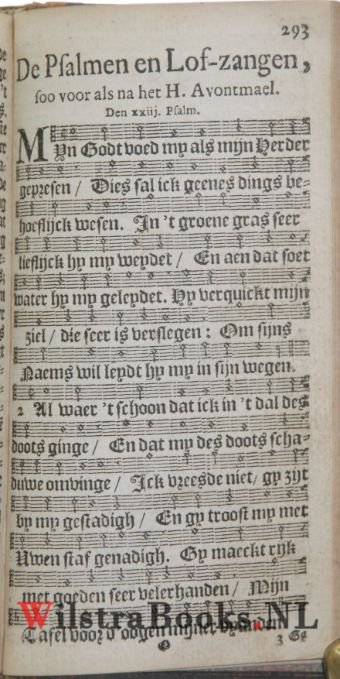 293
De Psalmen en Lof-zangen,
soo voor als na het H. Avontmael.
Den xxiij. Psalm.
MYn Godt voed my als mijn Herder
gepresen / Dies sal ick geenes dings be-
hoeflijck wesen. In 't groene gras seer
lieflijck hy my weydet / En aen dat soet
water hy my geleydet. Hy verquickt mijn
ziel / die seer is verslegen : Om sijns
Naems wil leydt hy my in sijn wegen.
2 Al waer 't schoon dat ick in 't dal des
doots ginge / En dat my des doots scha-
duwe omvinge / Ick vreesde niet / gy zijt
by my gestadigh / En gy troost my met
Uwen staf genadigh. Gy maeckt rijk
met goeden seer velerhanden / Mijn
WilstraBooks.NL
Tafel voor d' oogen mijner vyanden
3 Ge